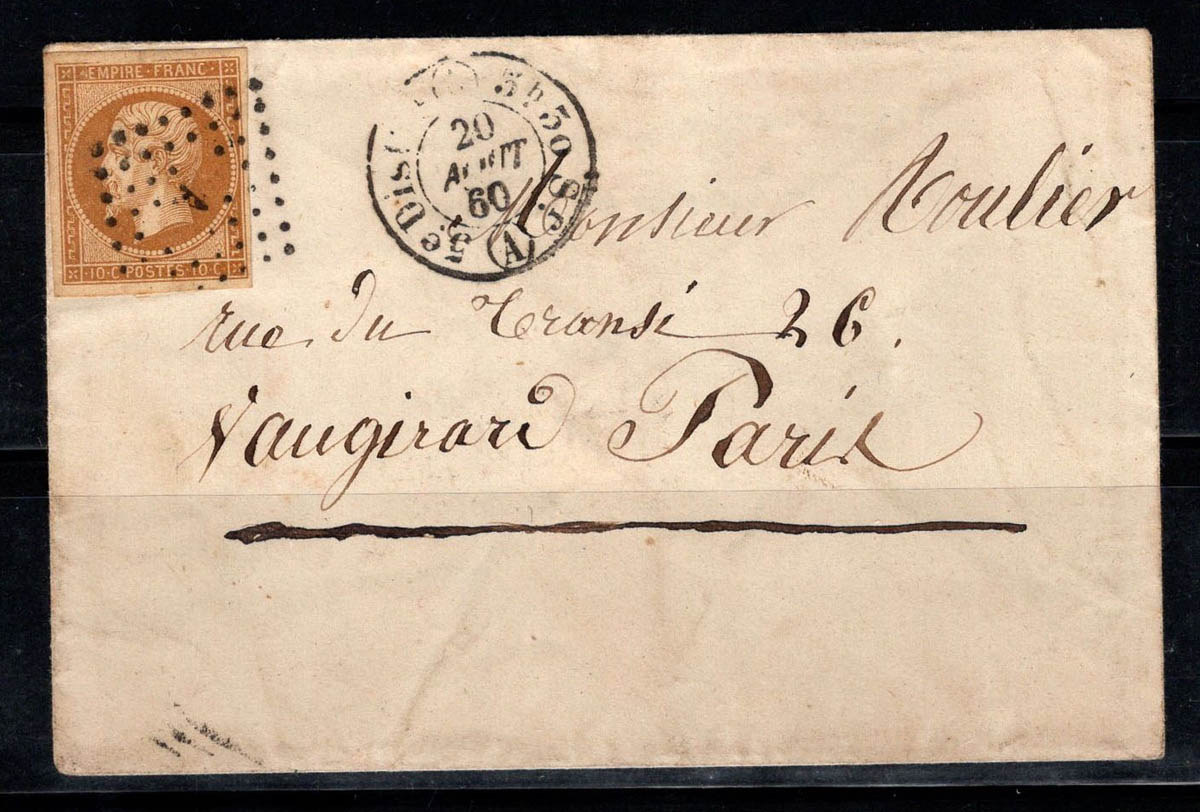 EMPIRE · FRANC ·
· 10 · C · POSTES · 10 · C ·
A
5e Dis 3h30 S.
20
AOUT
60
A
Monsieur Roulier
rue du Transi 26.
Vaugirard Paris